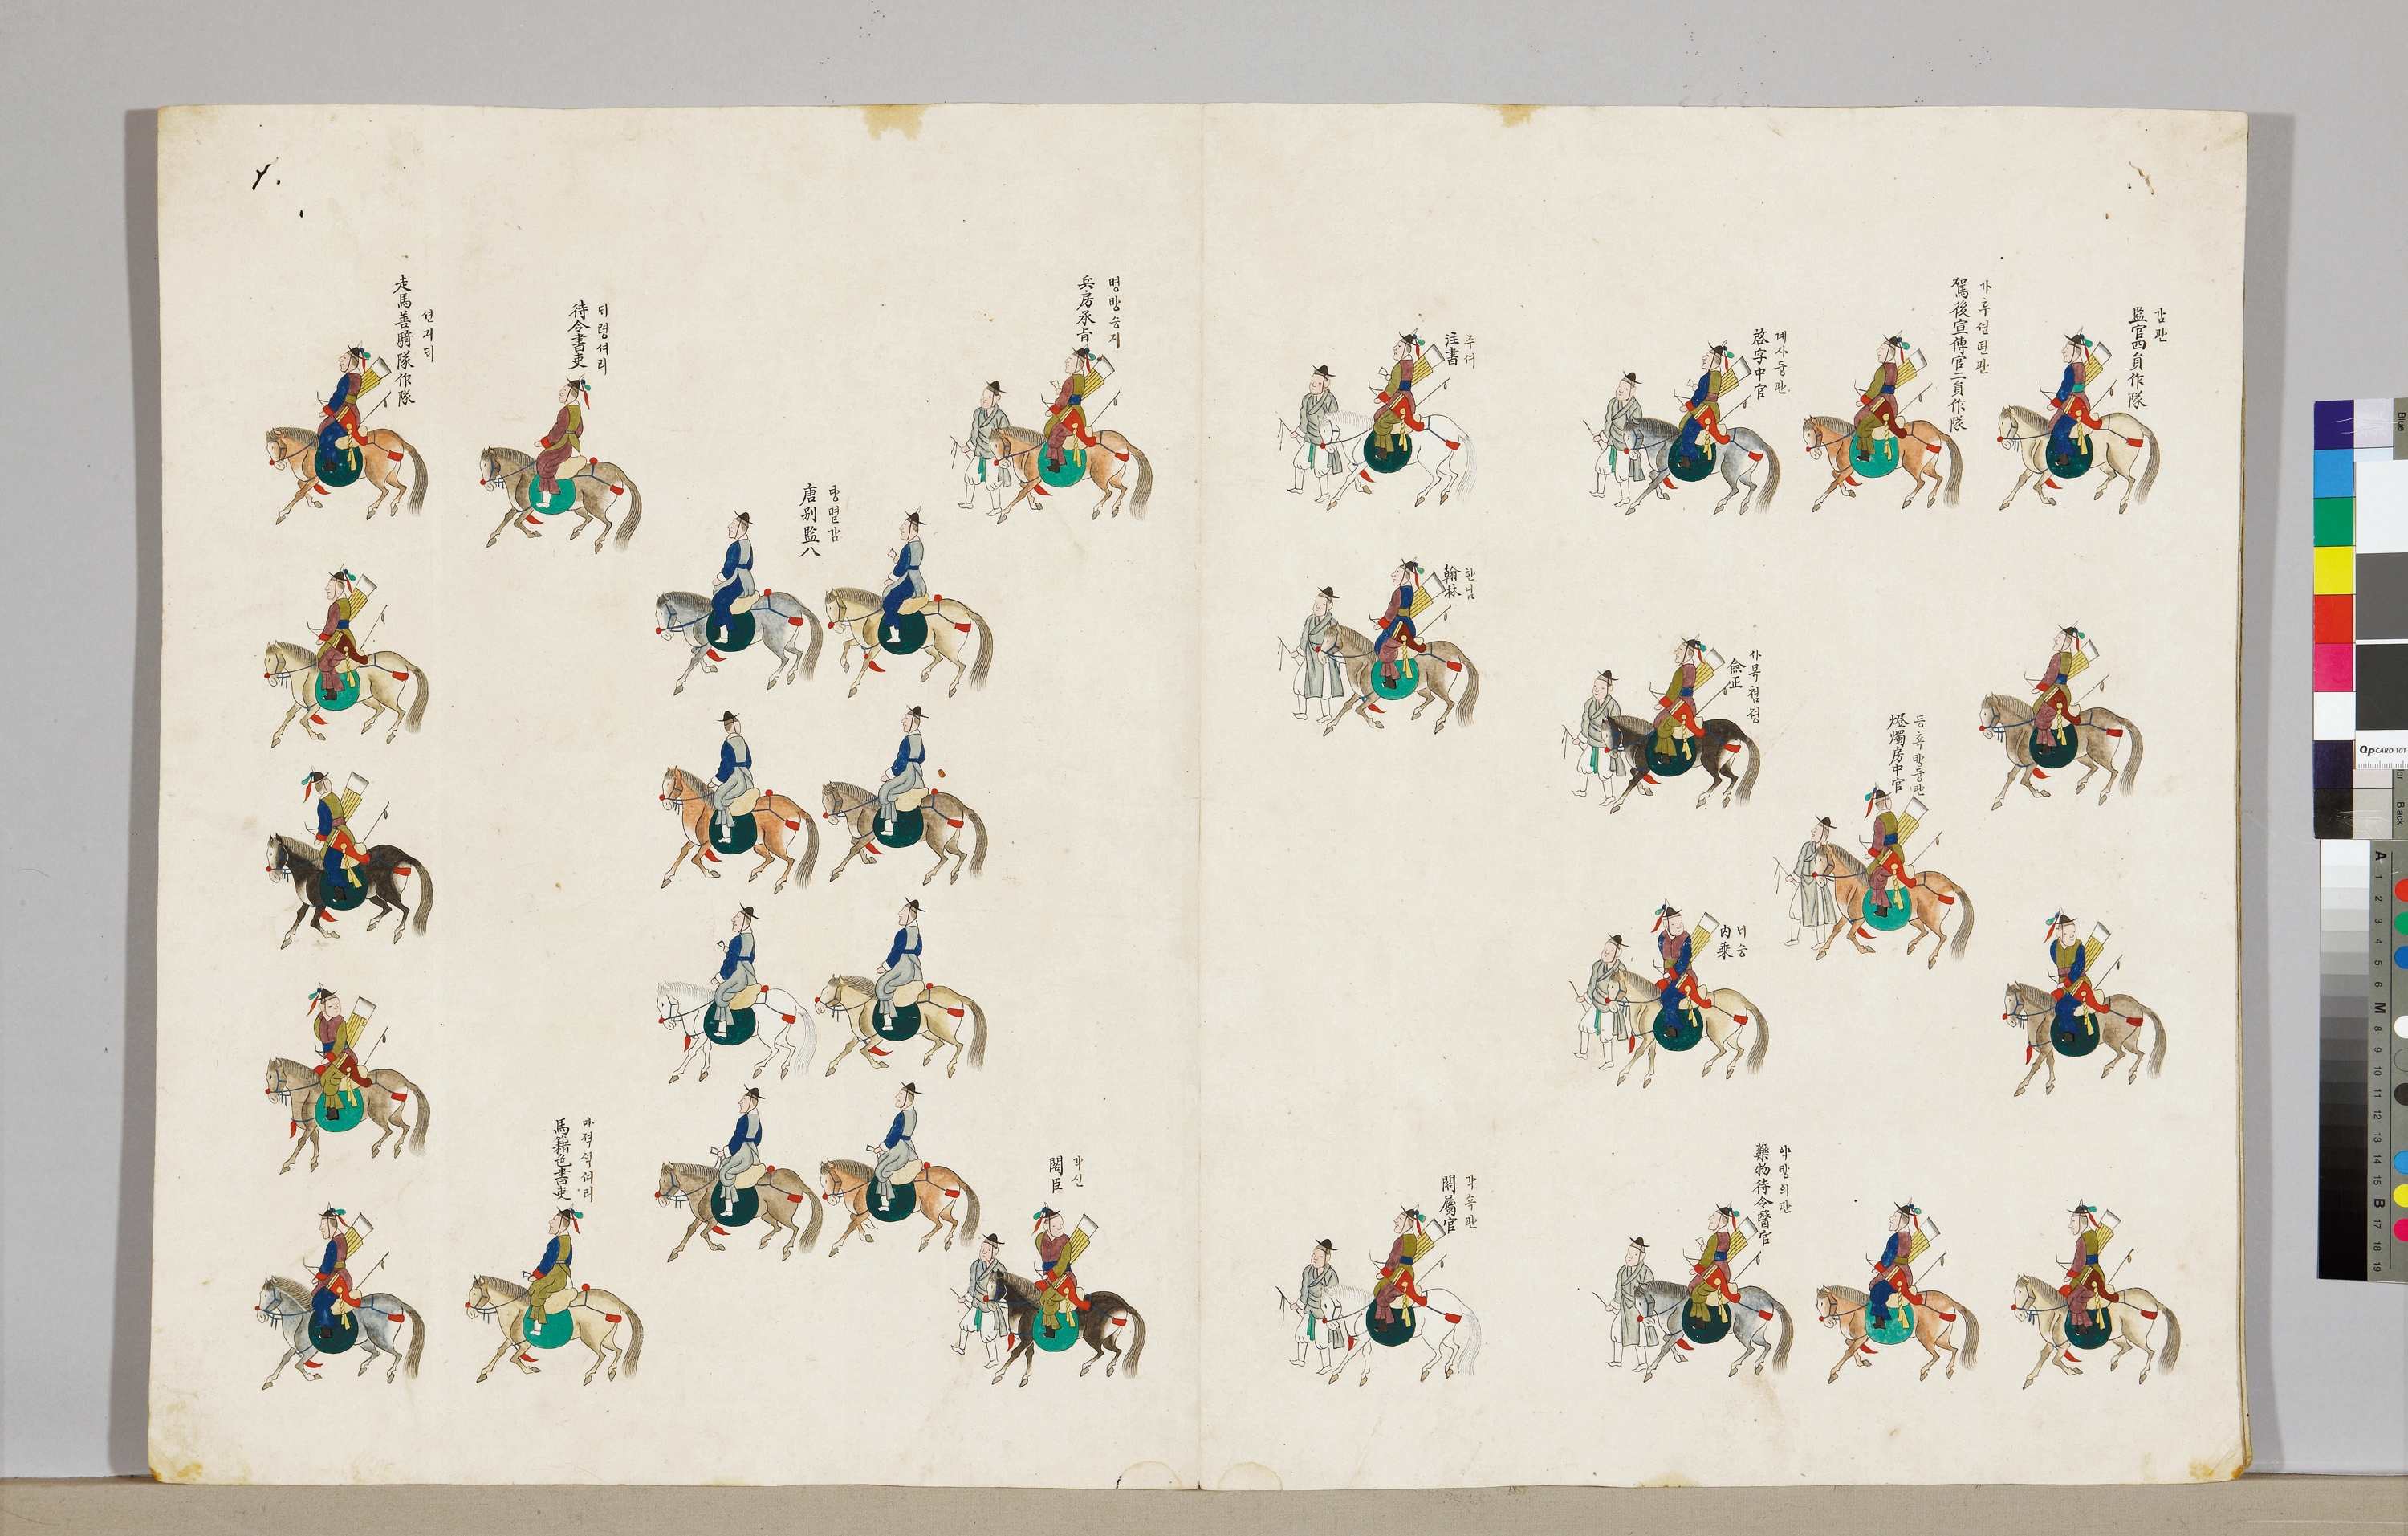 監官四員作隊
감관
駕後宣傳官二員作隊
가후션뎐관
啓字中官
계자듕관
僉正
사복쳠졍
燈燭房中官
등촉방듕관
內乘
너승
藥物待令醫官
약방의관
注書
주셔
翰林
한님
閣屬官
각속관
兵房承旨
병방승지
閣臣
각신
唐別監八
당별감
待令書吏
디령셔리
馬籍色書吏
마젹식셔리
走馬善騎隊作隊
션긔디
QpCARD 101
Blue
Black
A 1 2 3 4 5 6 M 8 9 10 11 12 13 14 15 B 17 18 19